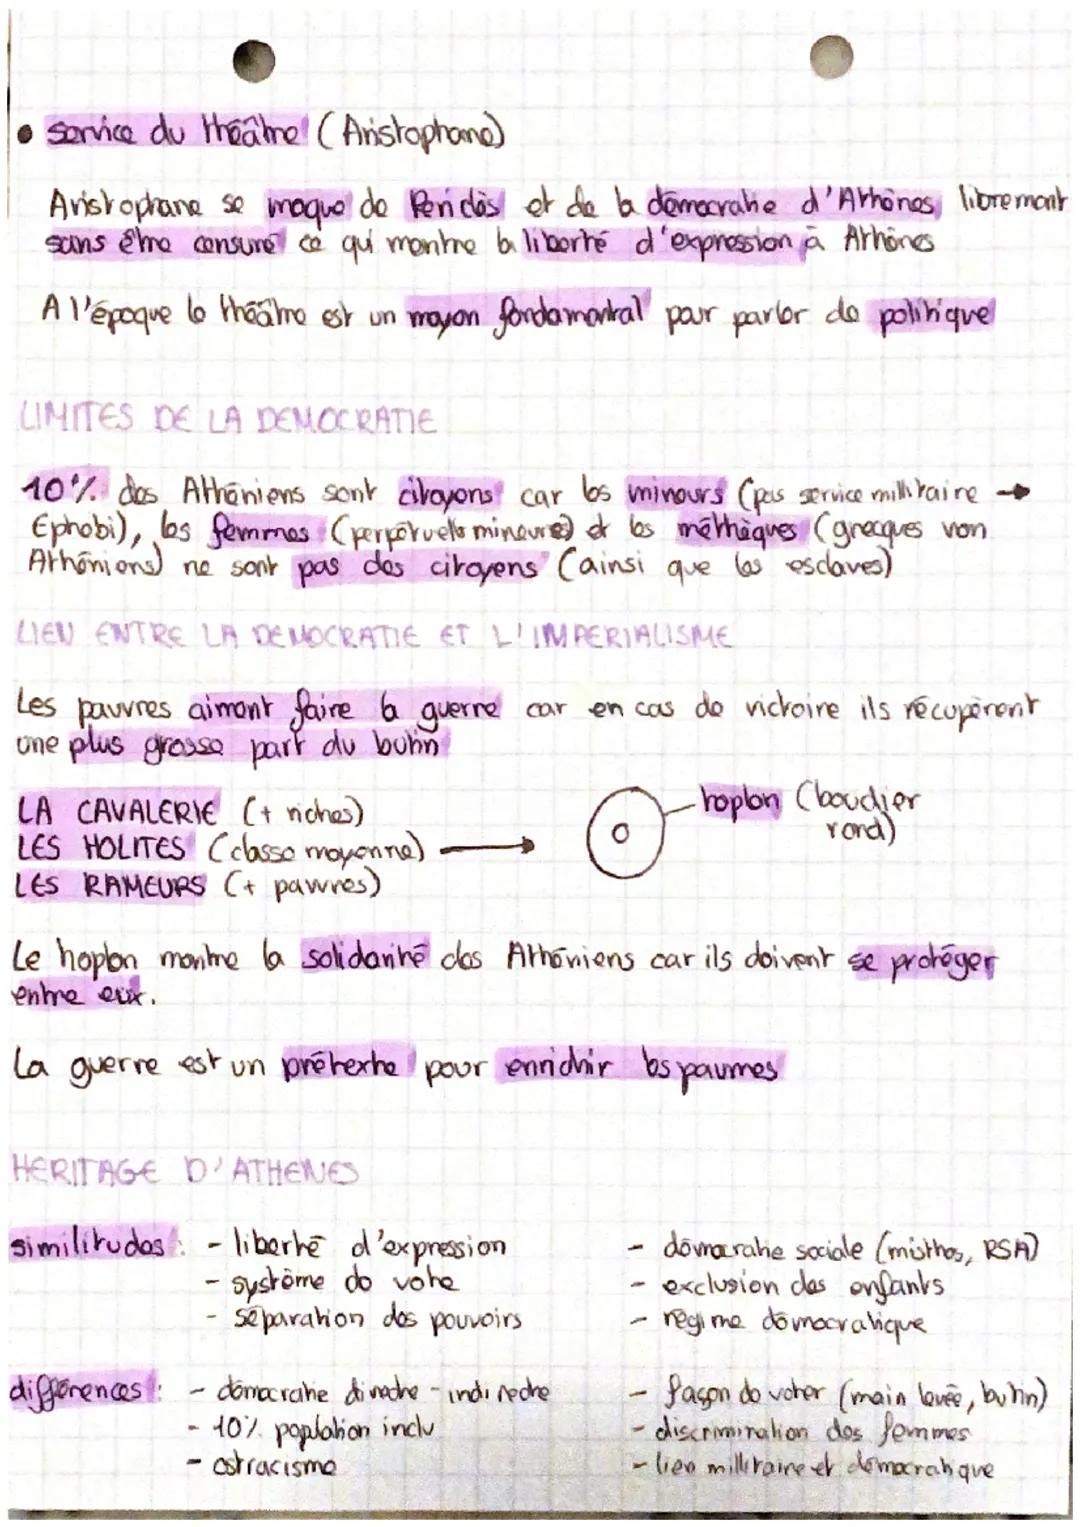 • service du théâtre (Aristophane)
Aristophane se moque de Periclès et de la démocratie d'Athènes librement
sans être censuré ce qui montre la liberté d'expression à Athènes
A l'époque le théâtre est un moyen fondamental pour parler de politique
LIMITES DE LA DEMOCRATIE
10% des Athéniens sont citoyens car les mineurs (pas service millitaire →
Ephobi), les femmes (perpétuelle mineures) et les méthèques (grecques non
Athéniens) ne sont pas des citoyens (ainsi que les esclaves)
LIEN ENTRE LA DEMOCRATIE ET L'IMPERIALISME
Les pauvres aiment faire la guerre car en cas de victoire ils récupèrent
une plus grosse part du butin
LA CAVALERIE (+ riches)
LES HOLITES (classe moyenne) →
LES RAMEURS (+ pauvres)
hoplon (boudier
rond)
Le hoplon montre la solidarité des Athéniens car ils doivent se protéger
entre eux.
La guerre est un prétexte pour enrichir les pauvres
HERITAGE D'ATHENES
similitudes : - liberté d'expression
- système de vote
- séparation des pouvoirs
- démocratie sociale (misthos, RSA)
- exclusion des enfants
- régime démocratique
différences : - démocratie directe - indirecte
- 10% poplation inclu
- ostracisme
- façon de voter (main levée, butin)
- discrimination des femmes
- lien millitaire et démocratique